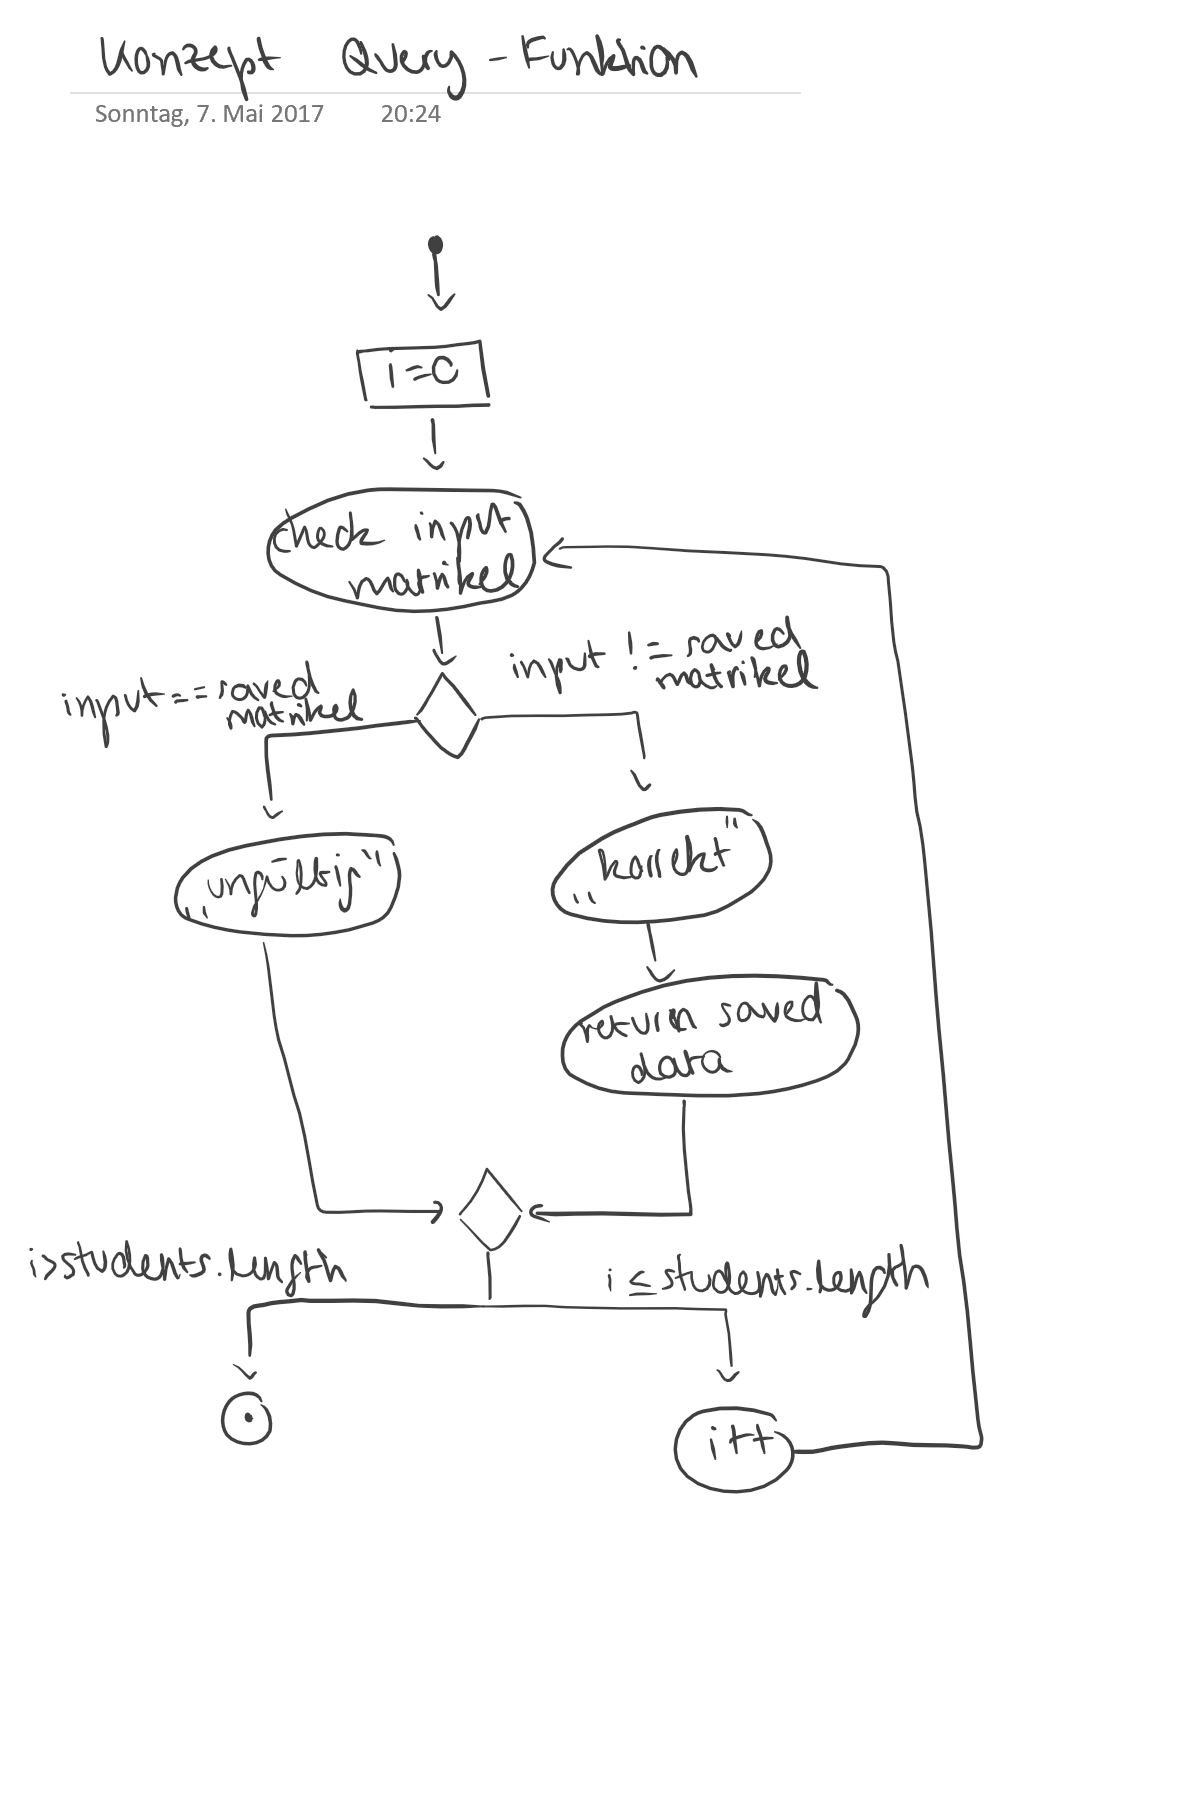 Konzept Query-Funktion
Sonntag, 7. Mai 2017 20:24
i=0
check input
matrikel
input == saved
matrikel
input != saved
matrikel
„ungültig"
"korrekt"
return saved
data
i>students.length
i ≤ students.length
i++